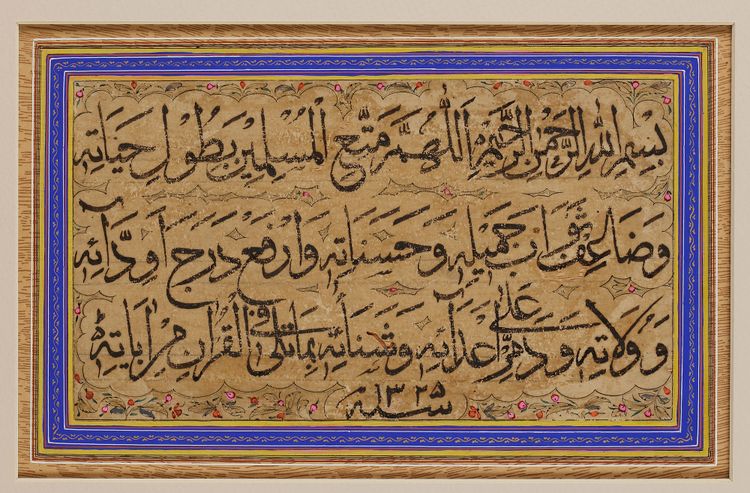 بِسْمِ اللهِ الرَّحْمنِ الرَّحيمِ اَللّهُمَّ مَتِّعِ الْمُسْلِمينَ بِطُولِ حَيَاتِه
وَضَاعِفْ ثَوابَ جَميلِه وَحَسَنَاتِه وَارْفَعْ دَرَجَ اَوِدَّائِه
وَوُلَاتِه وَدَمِّرْ عَلى اَعْدَآئِه وَشُنَاتِه بِمَا تُلِىَ فِى الْقُرانِ مِنْ ايَاتِه
سنة ١٣٢٥